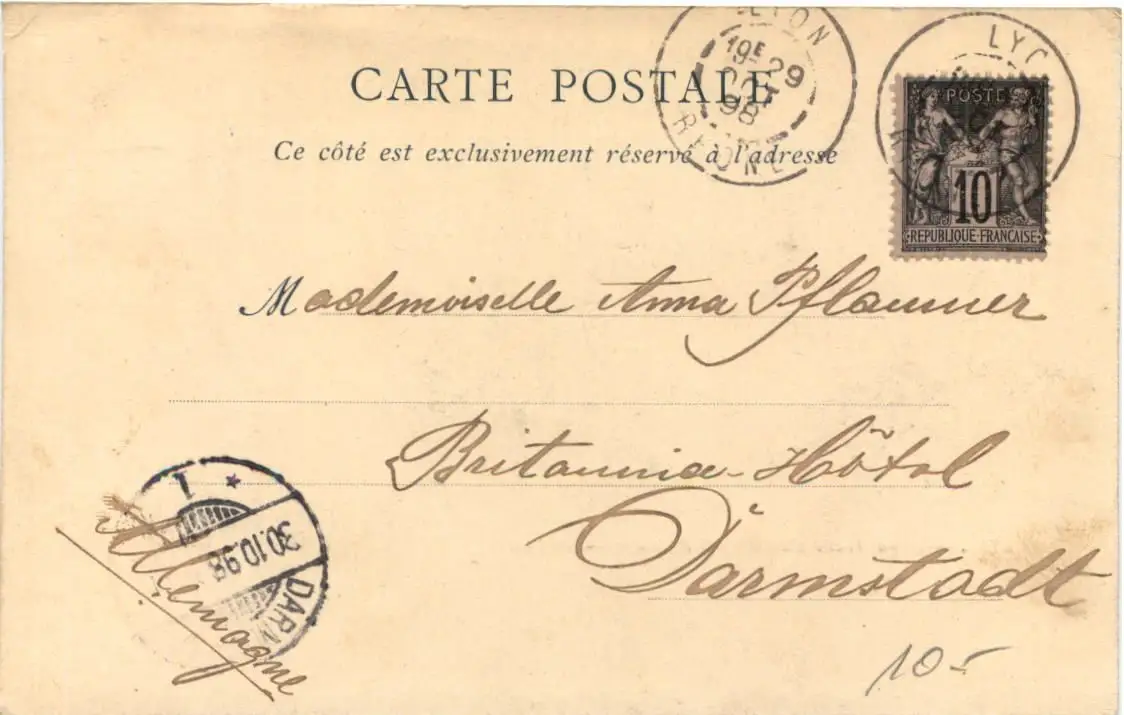 LYON
19E 29
OCT
98
RHONE
LYO
POSTES
10
REPUBLIQUE FRANCAISE
CARTE POSTALE
Ce côté est exclusivement réservé à l'adresse
Mademoiselle Anna Pflaumer
Britannia-Hôtel
Darmstadt
Allemagne
1 *
30.10.98
DARM
10-